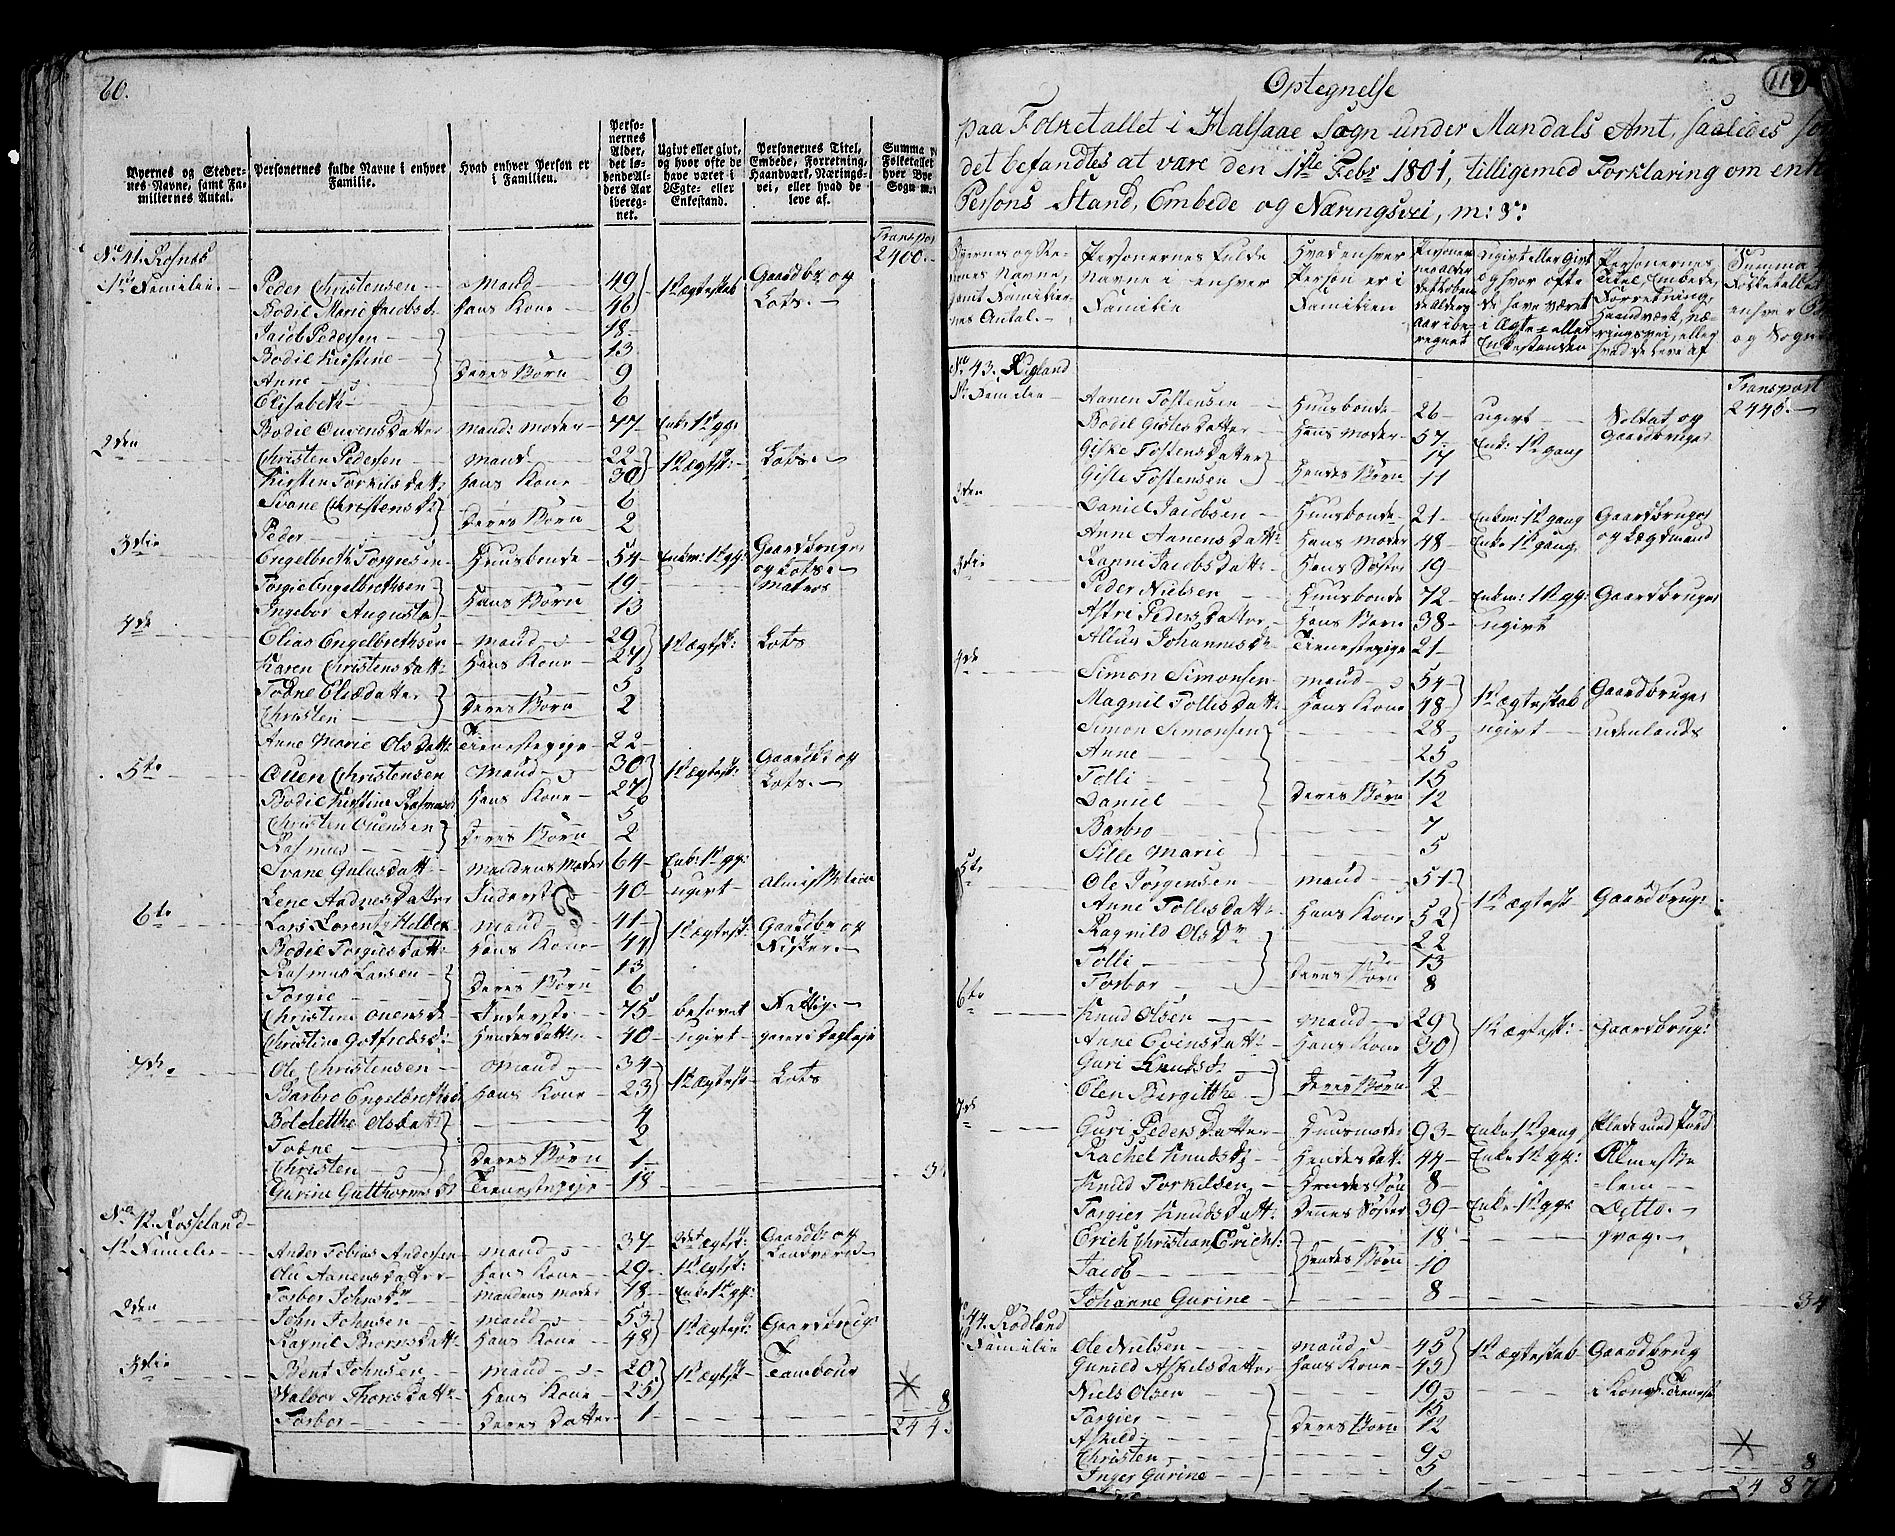 60.
Byernes og Stedernes Navne, samt Familiernes Antal.
Personernes fulde Navne i enhver Familie.
Hvad enhver Person er i Familien.
Personernes Alder, det løbende Alders Aar iberegnet.
Ugivt eller givt, og hvor ofte de have været i Ægte- eller Enkestand.
Personernes Titel, Embede, Forretning, Haandværk, Næringsvei, eller hvad de leve af.
Summa Folketallet hver Bye Sogn
Transport 2400.
No 41. Rosnæs
1te Familie. Peder Christensen Mand 49 1te Ægteskab Gaardbr og Lots.
Bodil Marie Jacobsd. Hans Kone 46
Jacob Pedersen 18
Bodil Kirstine 13
Anne Deres Børn 9
Elisabeth 6
Bodil Ouvensdatter Mand: Moder 77 Enke 1te gg:
2den Christen Pedersen Mand 22 1te Ægtesk: Lots.
Kirsten Torkilsdatt: Hans Kone 30
Svane Christensdt 6
Peder Deres Børn 2
3die Engelbreth Torgersen Huusbonde 54 Enkem: 1te gg: Gaardbruger og Lots.
Torgie Engelbrethsen 19 Matros
Ingebor Augusta Hans Børn 13
4de Elias Engelbrethsen Mand 29 1te Ægtesk: Lots
Karen Christensdatt: Hans Kone 27
Tobne Eliædatter 5
Christen Deres Børn 2
Anne Marie Olsdatt: Tienestepige 22
5te Ouen Christensen Mand 30 1te Ægtesk: Gaardbr og Lots.
Bodil Kirstine Rasmusd Hans Kone 27
Christen Ouensen 5
Rasmus Deres Børn 2
Svane Gulusdatt Mandens Moder 64 Enke: 1te gg:
Lene Aadnesdatter Inderste 40 ugivt Almisselem
6te Lars Lorentz Holbek Mand 41 1te Ægtesk: Gaardbr og Fisker.
Bodil Torgiusdatt: Hans Kone 44
Rasmus Larsen 13
Torgie Deres Børn 6
Christine Ouensd. Inderste 75 besovet Fattig.
Christine Gotfredsd: Hendes Datter 40 ugivt
7de Ole Christensen Mand 34 1te Ægtesk Lots
Barbro Engelbrethsd Hans Kone 23
Bolelethe Olsdatt: 4
Tobne 2
Christen Deres Børn 1
Gurine Gutthormsdt Tienestepige 18
No 42. Rosseland
1te Familie Ander Tobias Andersen Mand 37 2det Ægtesk: Gaardbr og Landværnd
Olu Aanensdatter Hans Kone 29 1te Ægtsk:
Torbor Johnsdr Mandens Moder 78 Enke 1te gg:
2den John Johnsen Mand 53 1te Ægtesk: Gaardbrug:
Ragnil Biornsdatt: Hans Kone 48
3die Bent Johnsen Mand 20 1te Ægtsk Tambour
Valbor Thoresdatt: Hans Kone 25
Torbor Deres Datter 1
8
244
119
Optegnelse
paa Folketallet i Halsaae Sogn under Mandals Amt, saaledes som
det befandtes at være den 1ste Febr 1801, tilligemed Forklaring om enhver
Persons Stand, Embede og Næringsvei, m: v:
Byernes og Stedernes Navne, samt Familiernes Antal.
Personernes Fulde Navne i enhver Familie
Hvad enhver Person er i Familien
Personernes Alder det løbende Alders aar iberegnet
ugivt eller Givt og hvor ofte de have været i Ægte- eller Enkestanden
Personernes Titel, Embede, Forretning, Haandværk, Næringsvei, eller hvad de leve af
Summa Folketallet enhver Bye og Sogn
Transport 2440.
No 43. Kigland
1te Familie Aanen Tostensen Huusbonde 26 ugivt Soldat og Gaardbruger
Bodil Gislesdatter Hans Moder 57 Enke 1te gang
Giske Tostensdatter 17
Gisle Tostensen Hendes Børn 11
2den Daniel Jacobsen Huusbonde 21 Enkem: 1te gang Gaardbruger og Lægdmand
Anne Aanensdatt: Hans Moder 48 Enke 1te gang
Ranni Jacobsdatt: Hans Søster 19
3die Peder Nielsen Huusbonde 72 Enkem: 1te gg: Gaardbruger
Astri Pedersdatter Hans Børn 38 ugivt
Allus Johannesdr Tienestepige 21
4de Simon Simonsen Mand 54 1te Ægteskab Gaardbruger
Magnil Tollisdatt: Hans Kone 48
Simon Simonsen 28 ugivt udenlands
Anne 25
Tolli 15
Daniel Deres Børn 12
Barbro 7
Sille Marie 5
5te Ole Jørgensen Mand 51 1te Ægtesk Gaardbrug:
Anne Tollisdatt Hans Kone 52
Ragnild Olsdr 22
Tolli 13
Torbor Deres Børn 8
6te Knud Olsen Mand 29 1te Ægtesk: Gaardbrug:
Anne Evinsdatt: Hans Kone 30
Guri Knudsd: 4
Elen Bergitthe Deres Børn 2
7de Guri Pedersdatter Huusmoder 93 Enke 1te gang
Rachel Knudsdt Hendes Datt: 44 Enke 1te gg: Almisselem
Knud Torkilsen Hendes Søn 8
Torgier Knudsdatt: Dennes Søster 39 Enke 1te gg: Ditto.
Erich Christian Erichs: 18 svag.
Jacob Hendes Børn 10
Johanne Gurine 8
34
No 44. Rødland
1te Familie Ole Nielsen Mand 45 1te Ægteskab Gaardbrug
Gunild Askilsdatter Hans Kone 45
Niels Olsen 19 i Kongl. Tieneste
Torgier 15
Askild Deres Børn 12
Christen 9
Inger Gurine 5
1
8
2487